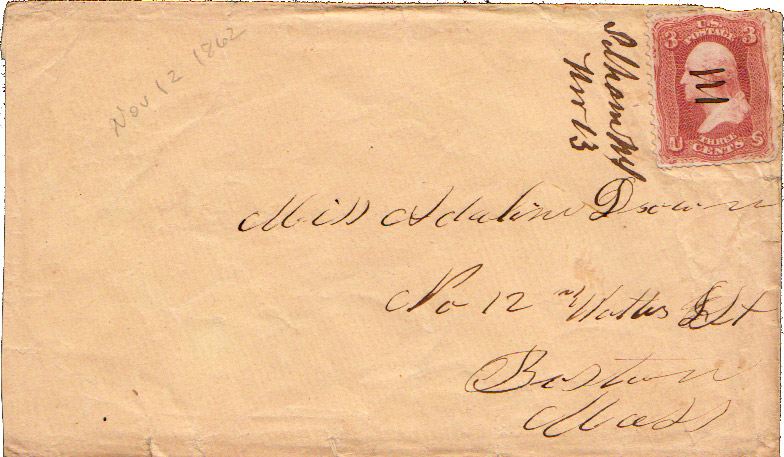 Nov 12 1862
Pelham NH
Nov 13
3 U.S. 3
POSTAGE
U THREE S
CENTS
Miss Adaline
No 12 St
Boston
Mass